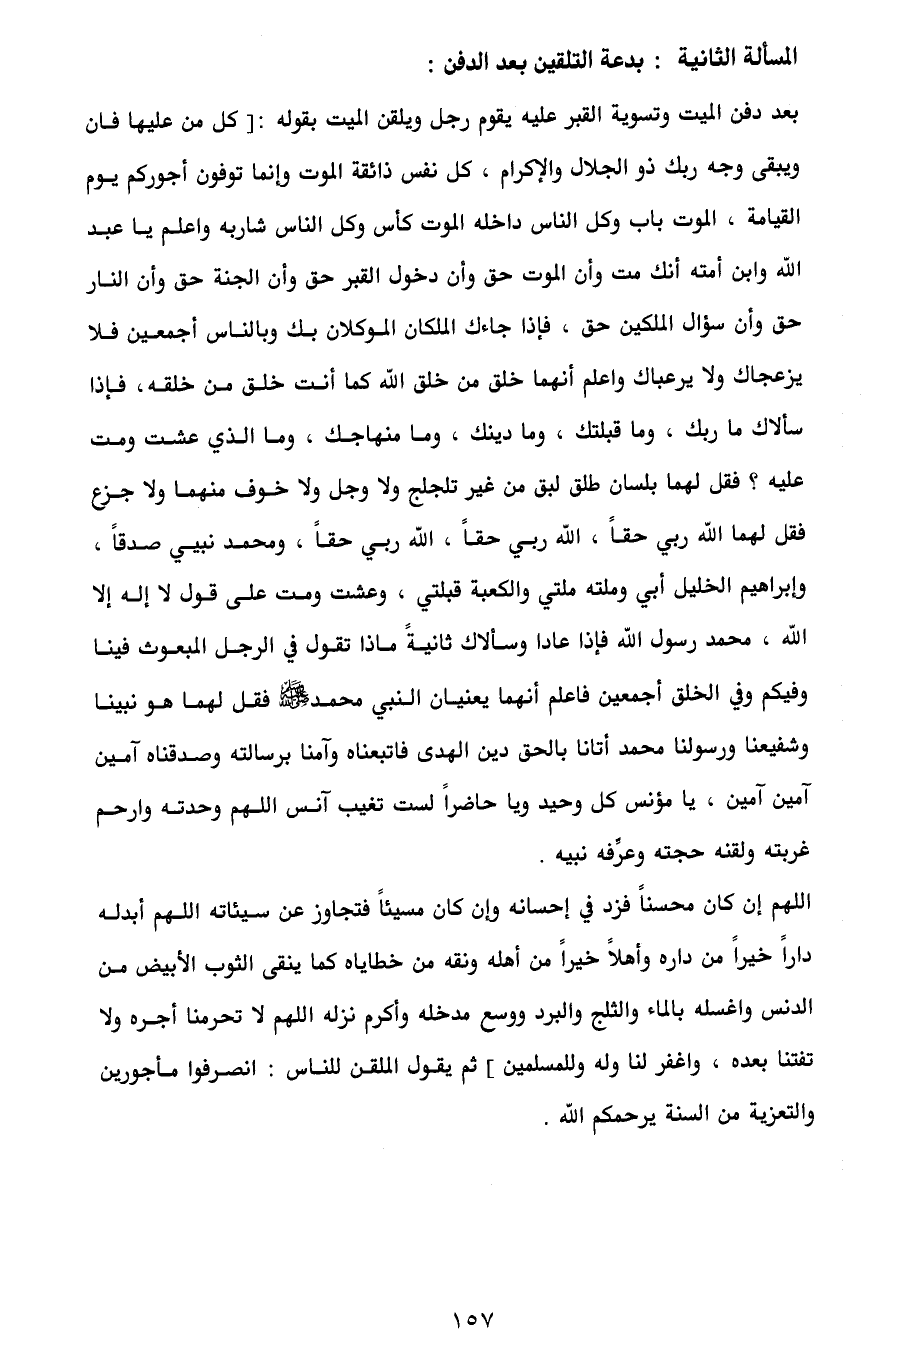 المسألة الثانية : بدعة التلقين بعد الدفن :
بعد دفن الميت وتسوية القبر عليه يقوم رجل ويلقن الميت بقوله :[ كل من عليها فان
ويبقى وجه ربك ذو الجلال والإكرام ، كل نفس ذائقة الموت وإنما توفون أجوركم يوم
القيامة ، الموت باب وكل الناس داخله الموت كأس وكل الناس شاربه واعلم يا عبد
الله وابن أمته أنك مت وأن الموت حق وأن دخول القبر حق وأن الجنة حق وأن النار
حق وأن سؤال الملكين حق ، فإذا جاءك الملكان الموكلان بك وبالناس أجمعين فلا
يزعجاك ولا يرعباك واعلم أنهما خلق من خلق الله كما أنت خلق من خلقه، فإذا
سألاك ما ربك ، وما قبلتك ، وما دينك ، وما منهاجك ، وما الذي عشت ومت
عليه ؟ فقل لهما بلسان طلق لبق من غير تلجلج ولا وجل ولا خوف منهما ولا جزع
فقل لهما الله ربي حقاً ، الله ربي حقاً ، الله ربي حقاً ، ومحمد نبيي صدقاً ،
وإبراهيم الخليل أبي وملته ملتي والكعبة قبلتي ، وعشت ومت على قول لا إله إلا
الله ، محمد رسول الله فإذا عادا وسألاك ثانيةً ماذا تقول في الرجل المبعوث فينا
وفيكم وفي الخلق أجمعين فاعلم أنهما يعنيان النبي محمد ﷺ فقل لهما هو نبينا
وشفيعنا ورسولنا محمد أتانا بالحق دين الهدى فاتبعناه وآمنا برسالته وصدقناه آمين
آمين آمين ، يا مؤنس كل وحيد ويا حاضراً لست تغيب آنس اللهم وحدته وارحم
غربته ولقنه حجته وعرِّفه نبيه .
اللهم إن كان محسناً فزد في إحسانه وإن كان مسيئاً فتجاوز عن سيئاته اللهم أبدله
داراً خيراً من داره وأهلاً خيراً من أهله ونقه من خطاياه كما ينقى الثوب الأبيض من
الدنس واغسله بالماء والثلج والبرد ووسع مدخله وأكرم نزله اللهم لا تحرمنا أجره ولا
تفتنا بعده ، واغفر لنا وله وللمسلمين ] ثم يقول الملقن للناس : انصرفوا مأجورين
والتعزية من السنة يرحمكم الله .
١٥٧